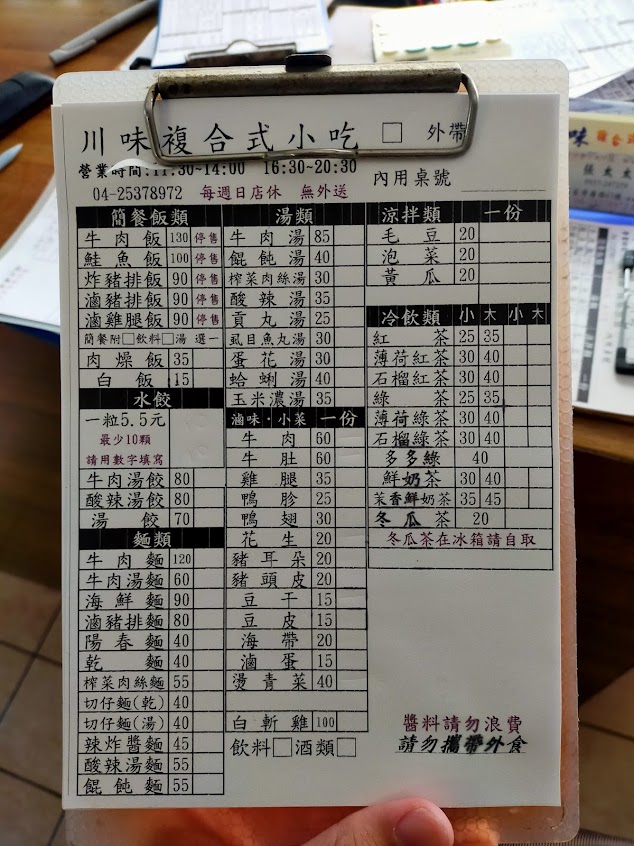 川味複合式小吃 □ 外帶
營業時間:11:30~14:00 16:30~20:30
04-25378972 每週日店休 無外送
內用桌號
簡餐飯類
牛肉飯 130 停售
鮭魚飯 100 停售
炸豬排飯 90 停售
滷豬排飯 90 停售
滷雞腿飯 90 停售
簡餐附□飲料□湯 選一
肉燥飯 35
白飯 15
水餃
一粒5.5元
最少10顆
請用數字填寫
牛肉湯餃 80
酸辣湯餃 80
湯餃 70
麵類
牛肉麵 120
牛肉湯麵 60
海鮮麵 90
滷豬排麵 80
陽春麵 40
乾麵 40
榨菜肉絲麵 55
切仔麵(乾) 40
切仔麵(湯) 40
辣炸醬麵 45
酸辣湯麵 55
餛飩麵 55
湯類
牛肉湯 85
餛飩湯 40
榨菜肉絲湯 30
酸辣湯 35
貢丸湯 25
虱目魚丸湯 30
蛋花湯 30
蛤蜊湯 40
玉米濃湯 35
滷味·小菜 一份
牛肉 60
牛肚 60
雞腿 35
鴨胗 25
鴨翅 30
花生 20
豬耳朵 20
豬頭皮 20
豆干 15
豆皮 15
海帶 20
滷蛋 15
燙青菜 40
白斬雞 100
飲料□酒類□
涼拌類 一份
毛豆 20
泡菜 20
黃瓜 20
冷飲類 小 大 小 大
紅茶 25 35
薄荷紅茶 30 40
石榴紅茶 30 40
綠茶 25 35
薄荷綠茶 30 40
石榴綠茶 30 40
多多綠 40
鮮奶茶 30 40
茉香鮮奶茶 35 45
冬瓜茶 20
冬瓜茶在冰箱請自取
醬料請勿浪費
請勿攜帶外食